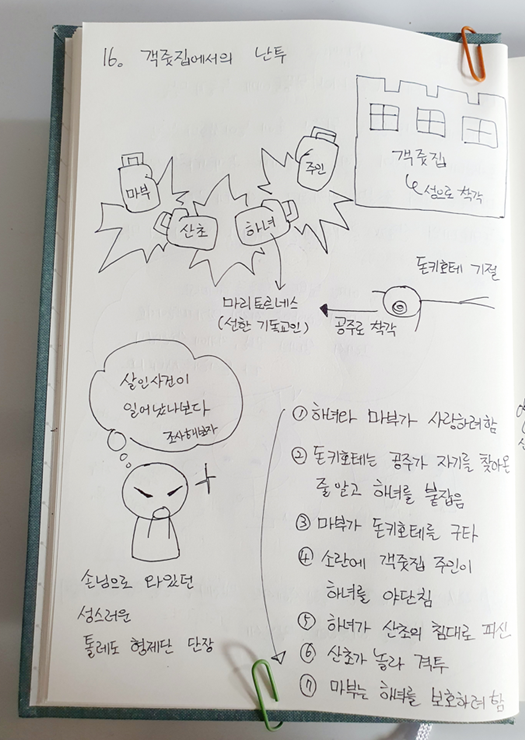 16. 객줏집에서의 난투
마부
산초
하녀
주인
객줏집
↳성으로 착각
돈키호테 기절
마리토르네스
(선한 기독교인)
공주로 착각
살인사건이
일어났나보다
조사해보자
손님으로 와있던
성스러운
톨레도 형제단 단장
① 하녀랑 마부가 사랑하려함
② 돈키호테는 공주가 자기를 찾아온
줄 알고 하녀를 붙잡음
③ 마부가 돈키호테를 구타
④ 소란에 객줏집 주인이
하녀를 야단침
⑤ 하녀가 산초의 침대로 피신
⑥ 산초가 놀라 격투
⑦ 마부는 하녀를 보호하려 함